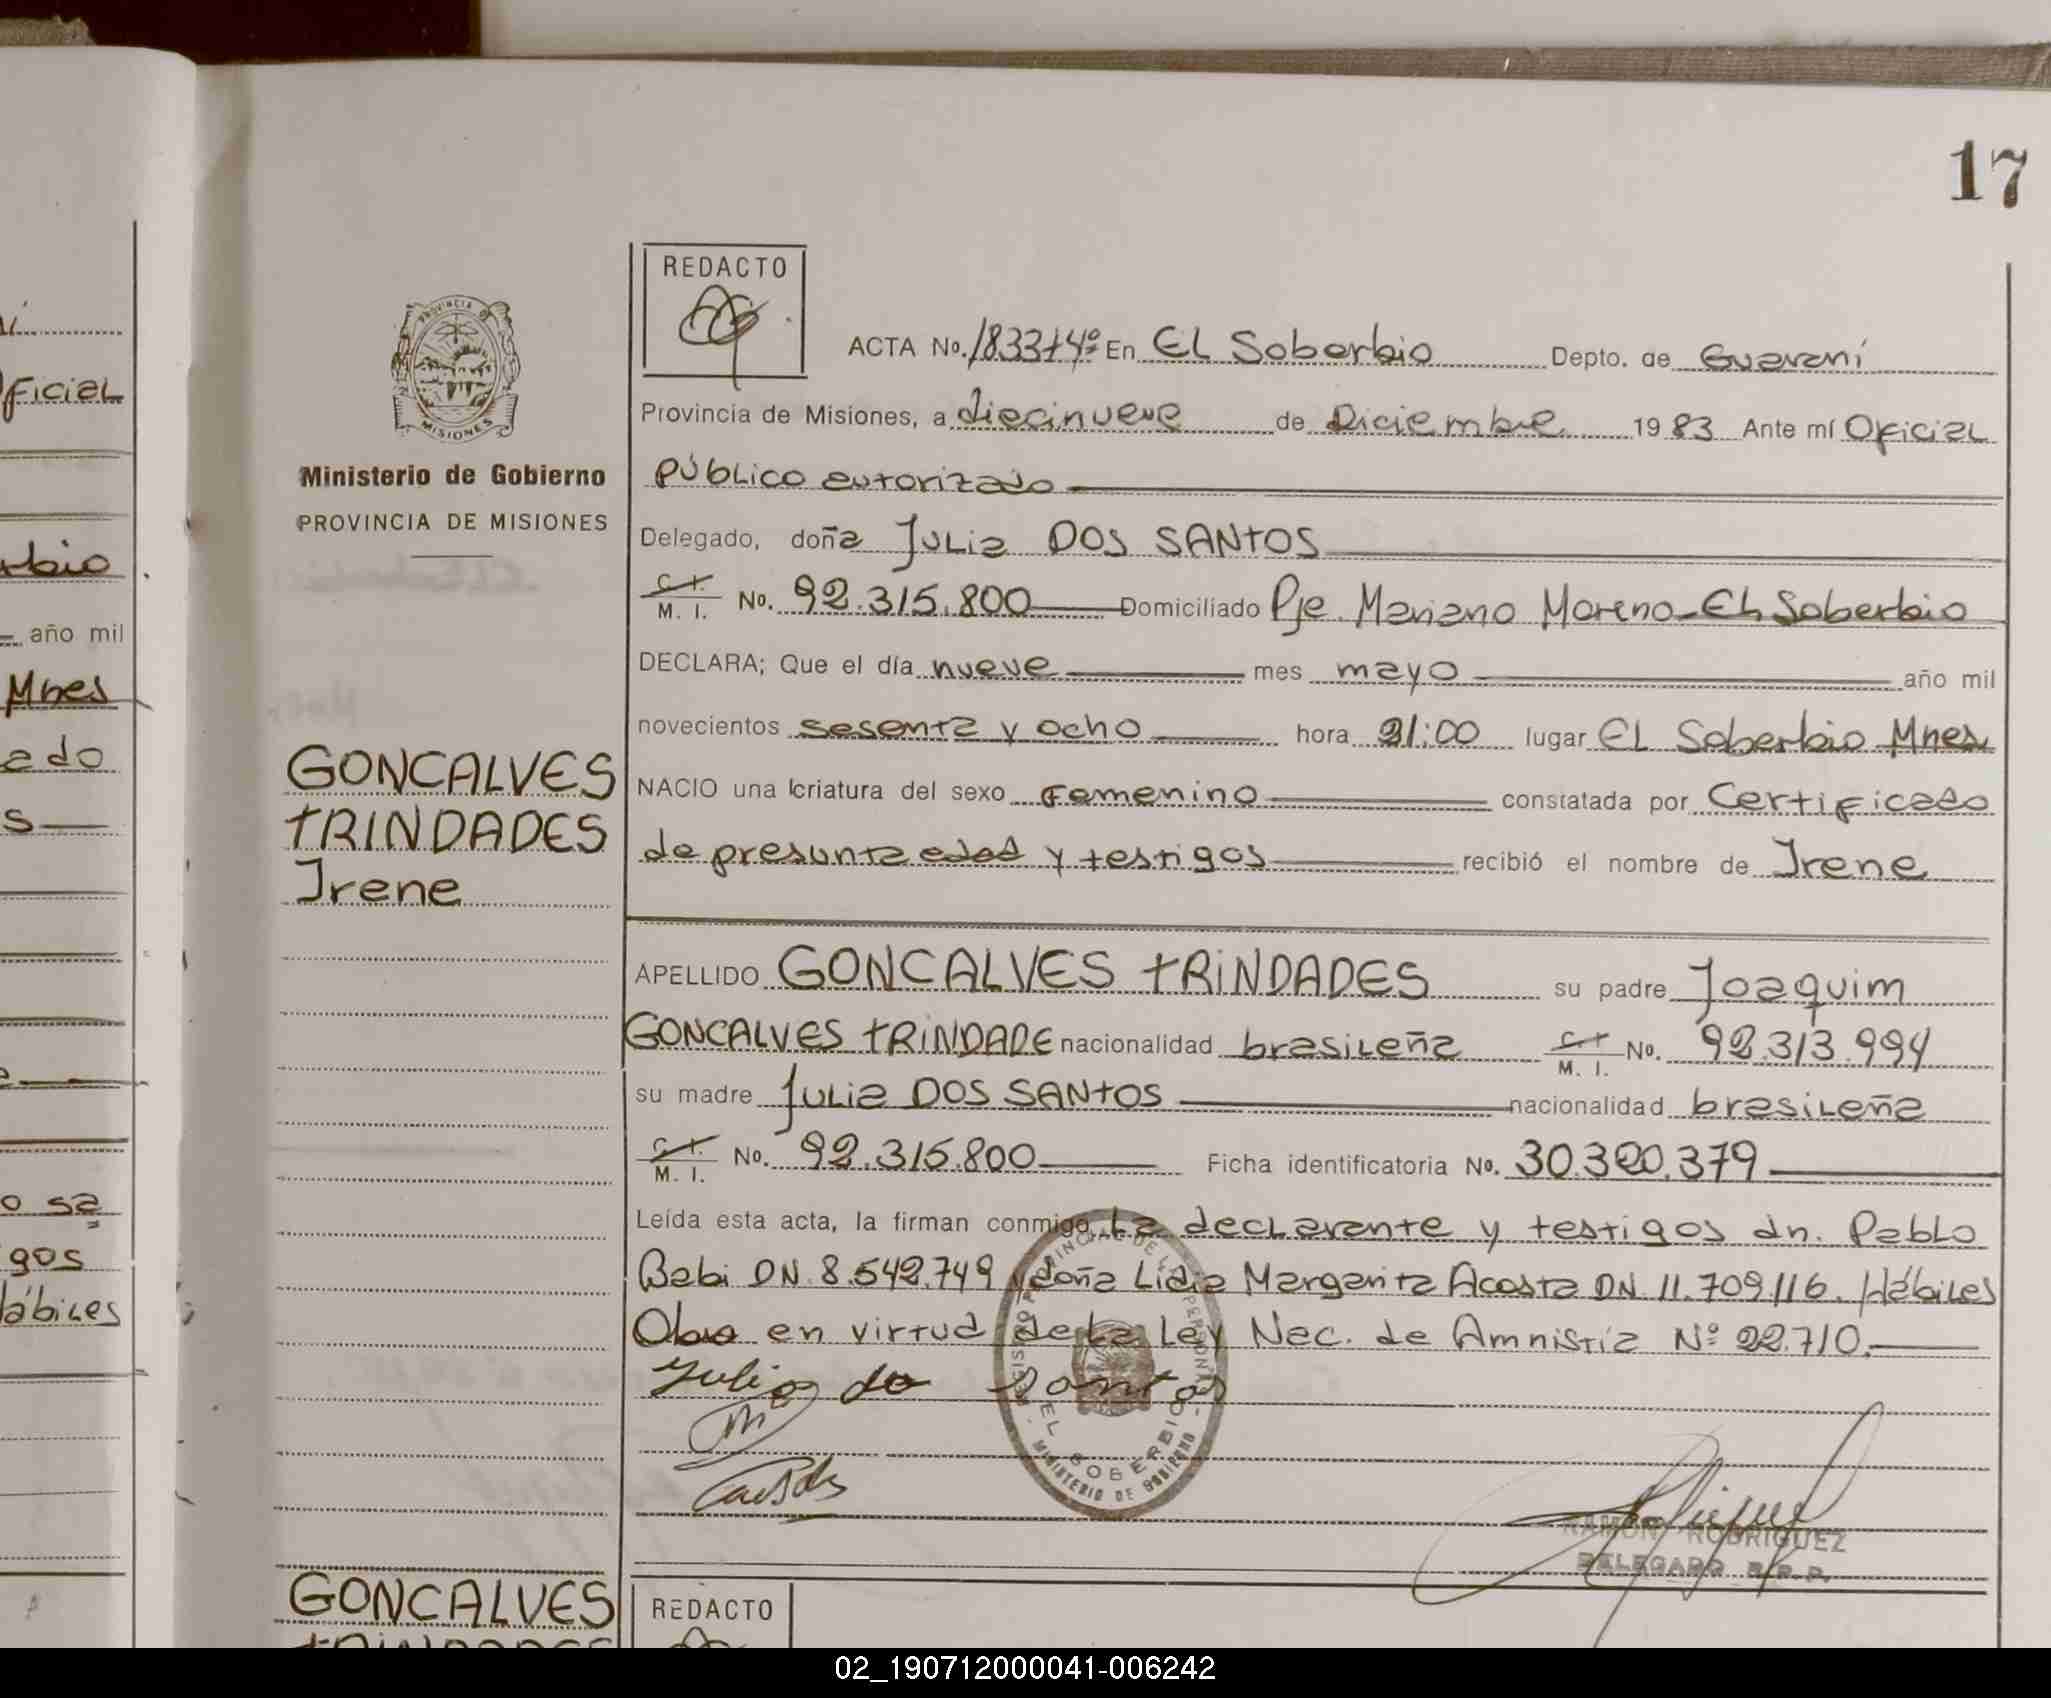 17
REDACTO
ACTA No. 1833 T4º En El Soberbio Depto. de Guaraní
Provincia de Misiones, a diecinueve de Diciembre 1983 Ante mí Oficial
público autorizado
Delegado, doña Julia DOS SANTOS
C. I. / M. I. No. 92.315.800 Domiciliado Pje. Mariano Moreno - El Soberbio
DECLARA; Que el día nueve mes mayo año mil
novecientos sesenta y ocho hora 21:00 lugar El Soberbio Mnes
NACIO una criatura del sexo Femenino constatada por Certificado
de presunta edad y testigos recibió el nombre de Irene
APELLIDO GONCALVES TRINDADES su padre Joaquim
GONCALVES TRINDADE nacionalidad brasileña C. I. / M. I. No. 92.313.994
su madre Julia DOS SANTOS nacionalidad brasileña
C. I. / M. I. No. 92.315.800 Ficha identificatoria No. 30.320.379
Leída esta acta, la firman conmigo La declarante y testigos dn. Pablo
Babi DN. 8.542.749 y doña Lidia Margarita Acosta DN. 11.709116. Hábiles
Obro en virtud de La Ley Nac. de Amnistía Nº 22.710.
Julia do Santos
REGISTRO PROVINCIAL DE LAS PERSONAS
EL SOBERBIO
MINISTERIO DE GOBIERNO
RAMON RODRIGUEZ
DELEGADO R.P.P.
PROVINCIA DE
MISIONES
Ministerio de Gobierno
PROVINCIA DE MISIONES
GONCALVES
TRINDADES
Irene
GONCALVES
TRINDADES
REDACTO
ficial
rbio
año mil
Mnes
ado
s
o sa
gos
Hábiles
02_190712000041-006242